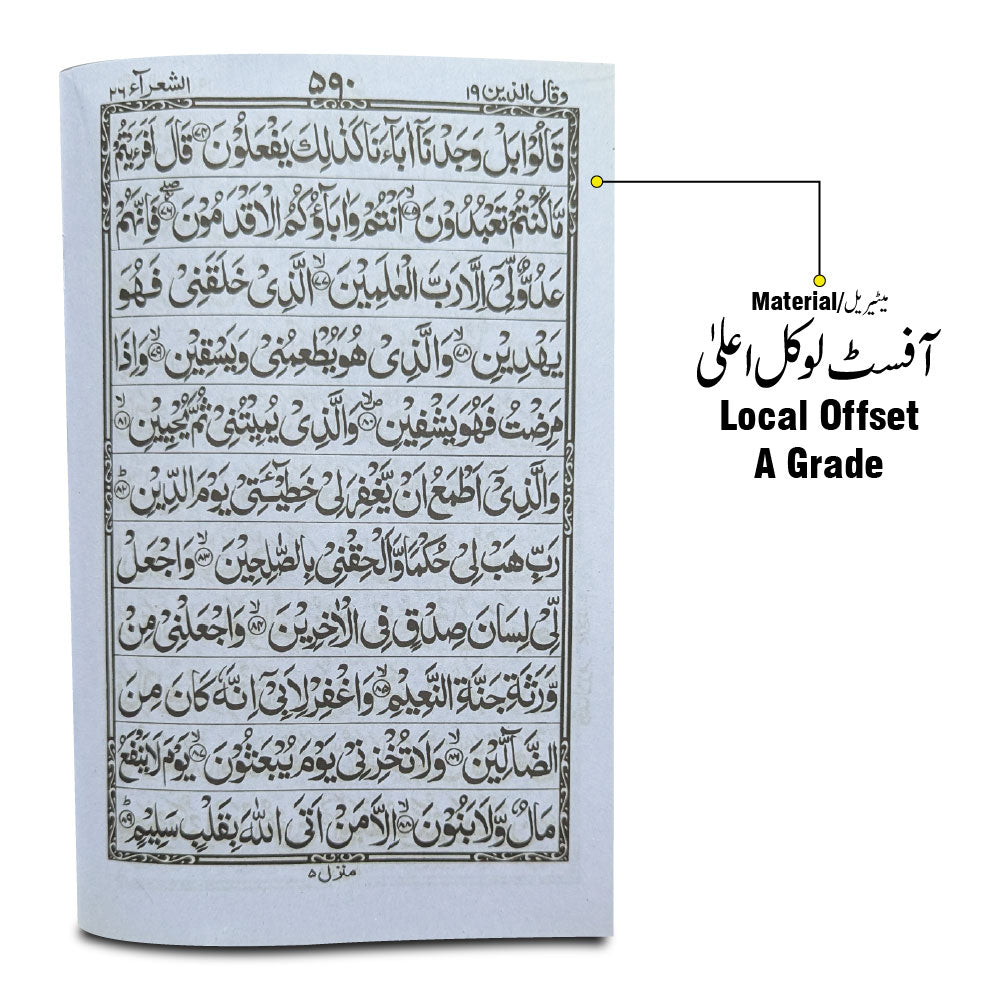 وقال الذین ۱۹
۵۹۰
الشعرآء ۲۶
قَالُوۡا بَلۡ وَجَدۡنَاۤ اٰبَآءَنَا كَذٰلِكَ يَفۡعَلُوۡنَ ﴿۷۴﴾ قَالَ اَفَرَءَيۡتُمۡ
مَّا كُنۡتُمۡ تَعۡبُدُوۡنَ ۙ﴿۷۵﴾ اَنۡتُمۡ وَاٰبَآؤُكُمُ الۡاَقۡدَمُوۡنَ ۖ﴿۷۶﴾ فَاِنَّهُمۡ
عَدُوٌّ لِّىۡۤ اِلَّا رَبَّ الۡعٰلَمِيۡنَ ۙ﴿۷۷﴾ الَّذِىۡ خَلَقَنِىۡ فَهُوَ
يَهۡدِيۡنِ ۙ﴿۷۸﴾ وَالَّذِىۡ هُوَ يُطۡعِمُنِىۡ وَيَسۡقِيۡنِ ۙ﴿۷۹﴾ وَاِذَا
مَرِضۡتُ فَهُوَ يَشۡفِيۡنِ ۙ﴿۸۰﴾ وَالَّذِىۡ يُمِيۡتُنِىۡ ثُمَّ يُحۡيِيۡنِ ۙ﴿۸۱﴾
وَالَّذِىۡۤ اَطۡمَعُ اَنۡ يَّغۡفِرَ لِىۡ خَطِيۡٓئَتِىۡ يَوۡمَ الدِّيۡنِ ؕ﴿۸۲﴾
رَبِّ هَبۡ لِىۡ حُكۡمًا وَّاَلۡحِقۡنِىۡ بِالصّٰلِحِيۡنَ ۙ﴿۸۳﴾ وَاجۡعَلۡ
لِّىۡ لِسَانَ صِدۡقٍ فِى الۡاٰخِرِيۡنَ ۙ﴿۸۴﴾ وَاجۡعَلۡنِىۡ مِنۡ
وَّرَثَةِ جَنَّةِ النَّعِيۡمِ ۙ﴿۸۵﴾ وَاغۡفِرۡ لِاَبِىۡۤ اِنَّهٗ كَانَ مِنَ
الضَّآلِّيۡنَ ۙ﴿۸۶﴾ وَلَا تُخۡزِنِىۡ يَوۡمَ يُبۡعَثُوۡنَ ۙ﴿۸۷﴾ يَوۡمَ لَا يَنۡفَعُ
مَالٌ وَّلَا بَنُوۡنَ ۙ﴿۸۸﴾ اِلَّا مَنۡ اَتَى اللّٰهَ بِقَلۡبٍ سَلِيۡمٍ ؕ﴿۸۹﴾
منزل ۵
Material/میٹیریل
آفسٹ لوکل اعلیٰ
Local Offset
A Grade